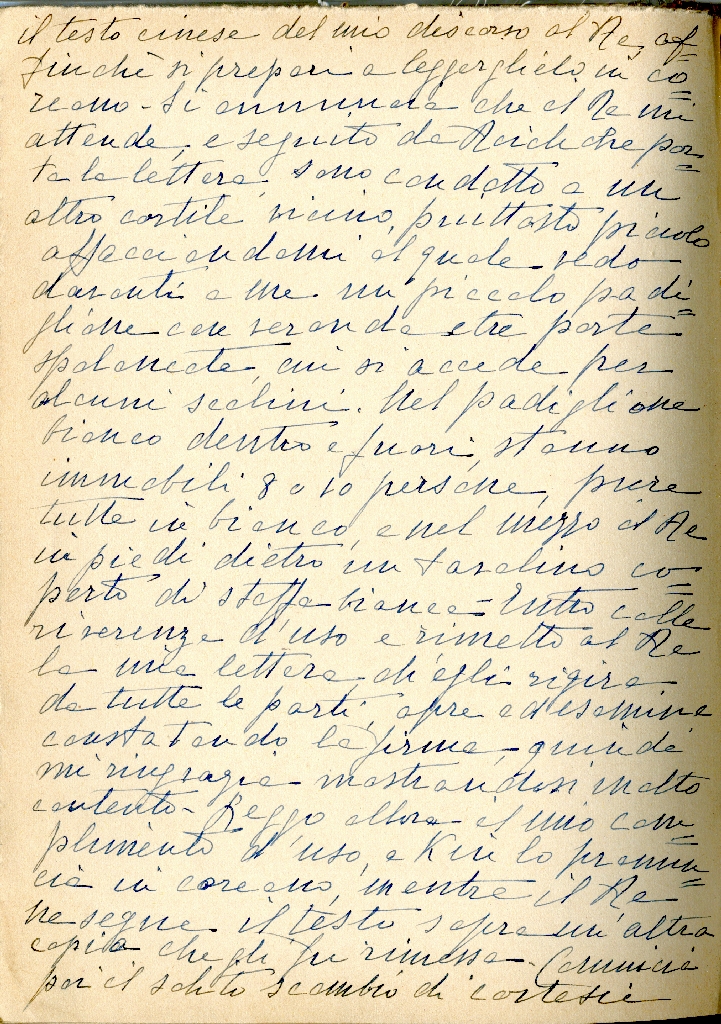 il testo cinese del mio discorso al Re, af=
finchè si prepari a leggerglielo in co=
reano - Si annuncia che il Re mi
attende, e seguito da che por=
ta la lettera, sono condotto a un
altro cortile vicino, piuttosto piccolo
affacciandomi al quale vedo
davanti a me un piccolo padi=
glione con veranda e tre porte
spalancate, cui si accede per
alcuni scalini. Nel padiglione
bianco dentro e fuori, stanno
immobili 8 o 10 persone, pure
tutte in bianco, e nel mezzo il Re
in piedi dietro un tavolino co=
perto di stoffa bianca - Entro colle
riverenze d'uso e rimetto al Re
la mia lettera, ch'egli rigira
da tutte le parti apre ed esamina
constatando la firma, quindi
mi ringrazia mostrandosi molto
contento - Leggo allora il mio com=
plimento d'uso, e Kin lo pronun=
cia in coreano, mentre il Re
ne segue il testo sopra un'altra
copia che gli fu rimessa - Comincia
poi il solito scambio di cortesie